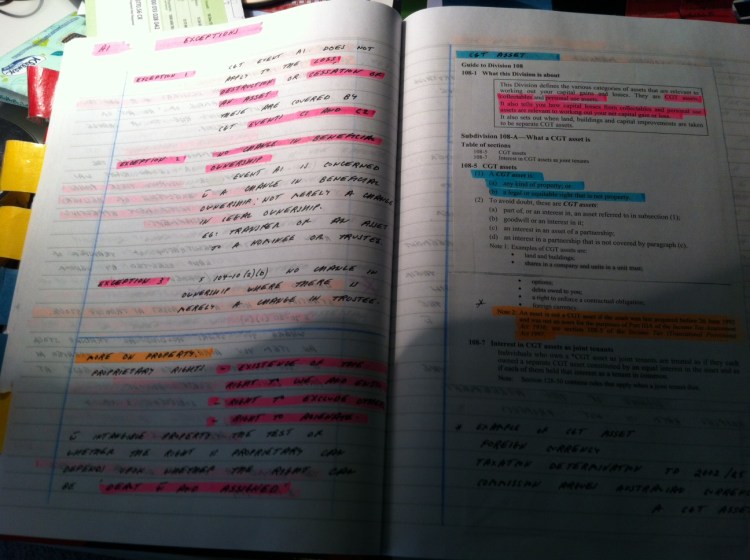 A1 EXCEPTIONS
EXCEPTION 1 CGT EVENT A1 DOES NOT
APPLY TO THE LOSS,
DESTRUCTION OR CESSATION OF
AN ASSET
THESE ARE COVERED BY
CGT EVENTS C1 AND C2
EXCEPTION 2 NO CHANGE IN BENEFICIAL
OWNERSHIP
EVENT A1 IS CONCERNED
A CHANGE IN BENEFICIAL
OWNERSHIP, NOT MERELY A CHANGE
IN LEGAL OWNERSHIP.
EG: TRANSFER OF AN ASSET
TO A NOMINEE OR TRUSTEE
EXCEPTION 3 S 104-10(2)(b) NO CHANGE IN
OWNERSHIP WHERE THERE IS
MERELY A CHANGE IN TRUSTEE.
MORE ON PROPERTY.
PROPRIETARY RIGHTS EXISTENCE OF
RIGHT TO USE AND ENJOY
RIGHT TO EXCLUDE OTHERS
RIGHT TO ALIENATE
INTANGIBLE PROPERTY THE TEST OF
WHETHER THE RIGHT IS PROPRIETARY CAN
DEPEND UPON WHETHER THE RIGHT CAN
BE DEALT AND ASSIGNED.
CGT ASSET
Guide to Division 108
108-1 What this Division is about
This Division defines the various categories of assets that are relevant to
working out your capital gains and losses. They are CGT assets,
collectables and personal use assets.
It also tells you how capital losses from collectables and personal use
assets are relevant to working out your net capital gain or loss.
It also sets out when land, buildings and capital improvements are taken
to be separate CGT assets.
Subdivision 108-A—What a CGT asset is
Table of sections
108-5 CGT assets
108-7 Interest in CGT assets as joint tenants
108-5 CGT assets
(1) A CGT asset is:
(a) any kind of property; or
(b) a legal or equitable right that is not property.
(2) To avoid doubt, these are CGT assets:
(a) part of, or an interest in, an asset referred to in subsection (1);
(b) goodwill or an interest in it;
(c) an interest in an asset of a partnership;
(d) an interest in a partnership that is not covered by paragraph (c).
Note 1: Examples of CGT assets are:
• land and buildings;
• shares in a company and units in a unit trust;
• options;
• debts owed to you;
• a right to enforce a contractual obligation;
• foreign currency.
108-7 Interest in CGT assets as joint tenants
Individuals who own a *CGT asset as joint tenants are treated as if they each
owned a separate CGT asset constituted by an equal interest in the asset and as
if each of them held that interest as a tenant in common.
* EXAMPLE OF CGT ASSET
FOREIGN CURRENCY
TAXATION DETERMINATION TD 2002/25
AUSTRALIAN
A CGT ASSET